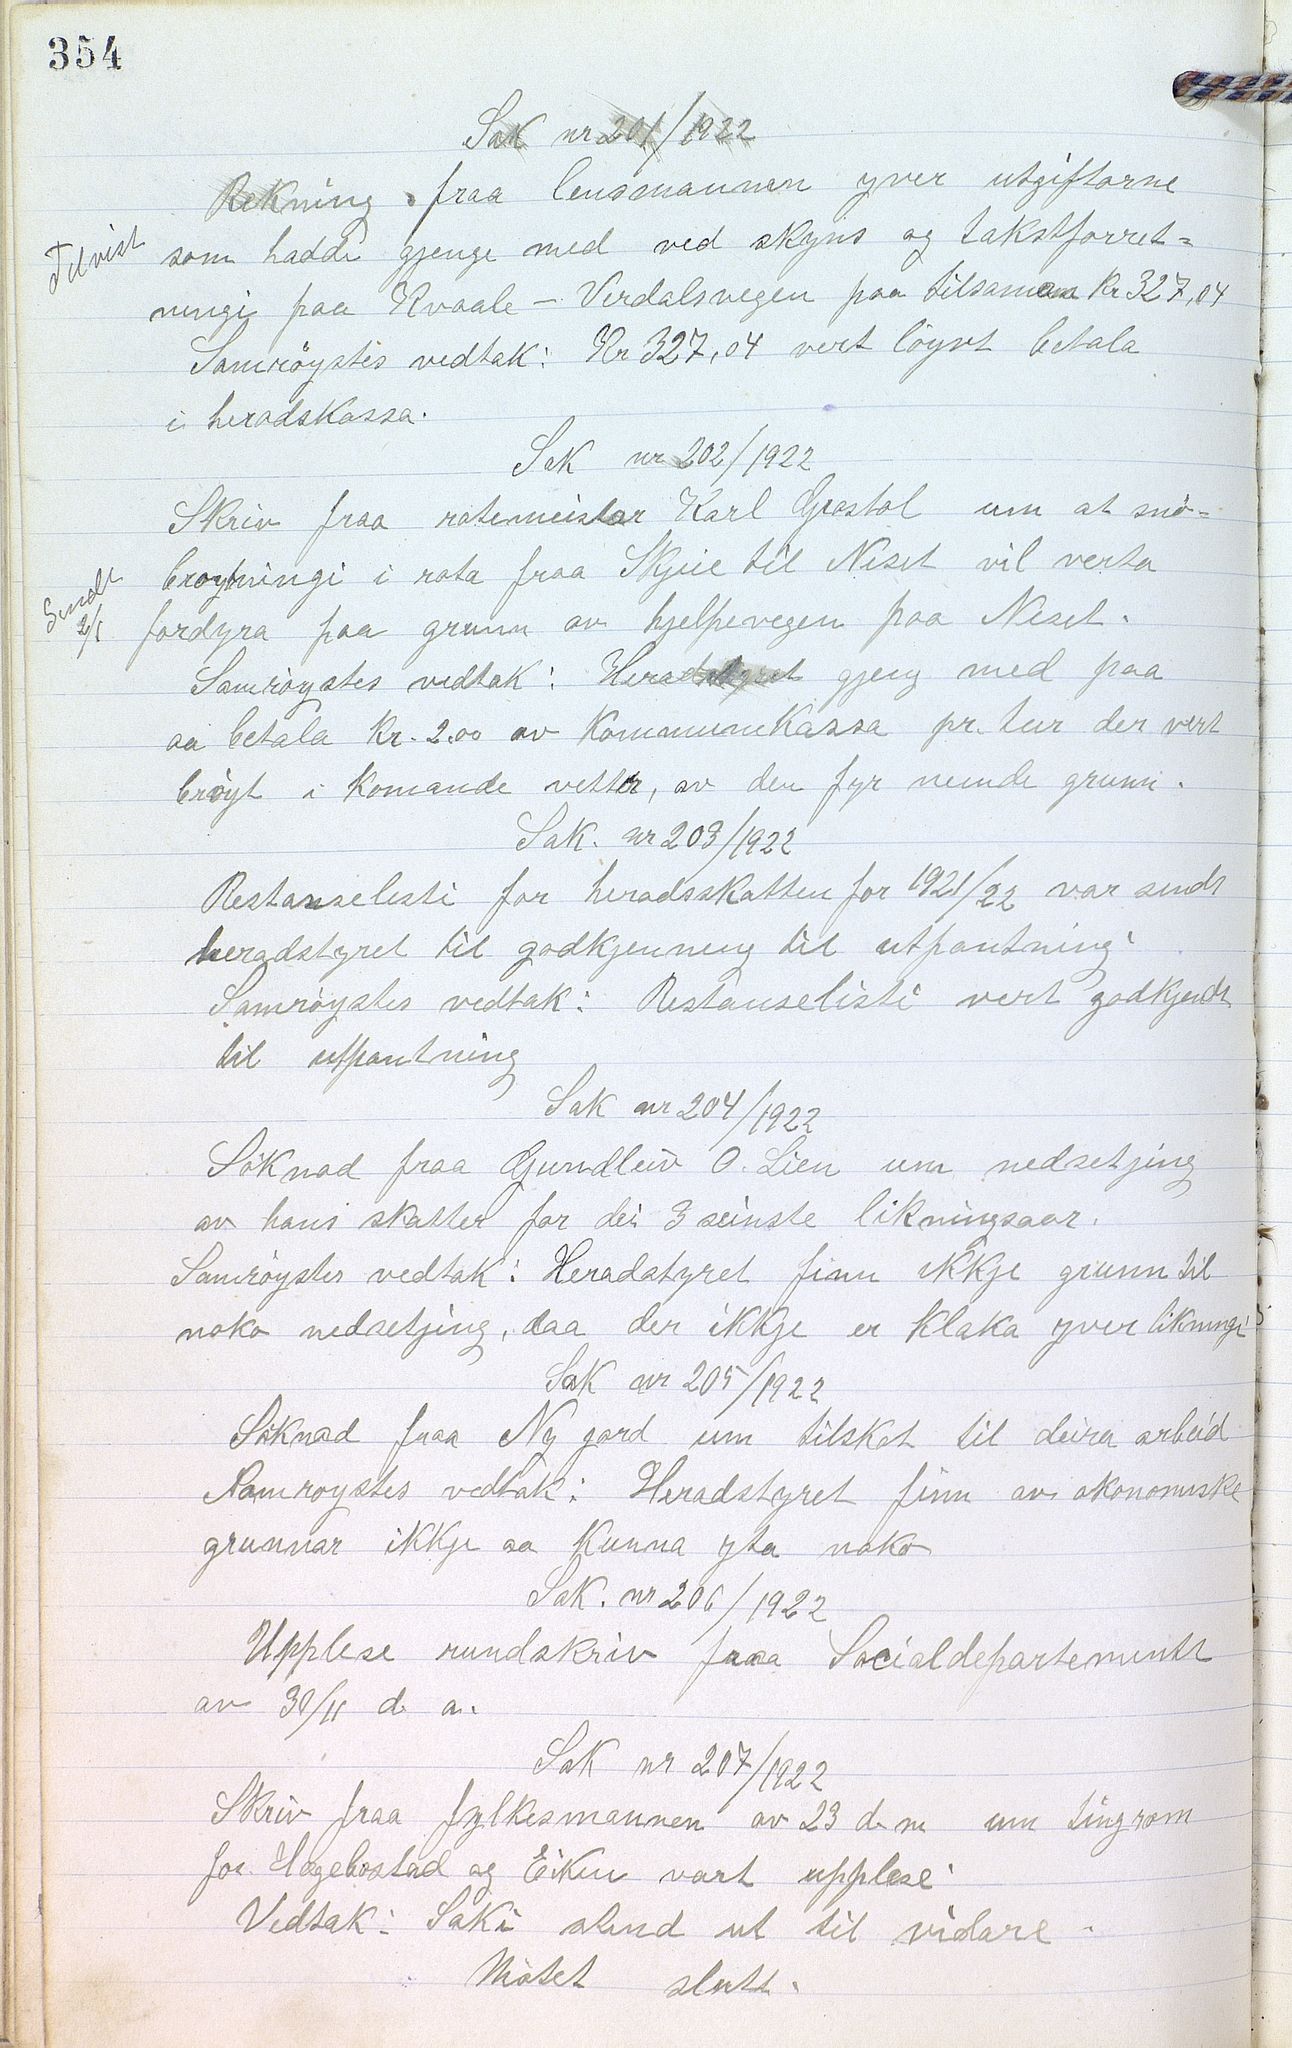 354
Sak nr 201/1922
Rekning fraa lensmannen yver utgiftarne
Tilvist
som hadde gjenge med ved skyns og takstforret=
ningi paa Kvaale - Verdalsvegen paa tilsaman Kr 327,04
Samröystes vedtak: Kr 327,04 vert löyvt betala
i heradskassa.
Sak nr 202/1922
Skriv fraa rotemeistar Karl Grostöl um at snö=
bröytningi i rota fraa Skjeie til Neset vil verta
Sendt
2/1
fordyra paa grunn av hjelpevegen paa Neset.
Samröystes vedtak: Heradstyret gjeng med paa
aa betala Kr. 2.00 av Kommunekassa pr. tur der vert
bröyt i komande vetter, av den fyr nemde grunn.
Sak. nr 203/1922
Restanselisti for heradsskatten for 1921/22 var sendt
heradstyret til godkjenning til utpantning
Samröystes vedtak: Restanselisti vert godkjendt
til utpantning
Sak nr 204/1922
Söknad fraa Gundleiv O. Lien um nedsetjing
av hans skatter for dei 3 seinste likningsaar.
Samröystes vedtak: Heradstyret finn ikkje grunn til
noko nedsetjing, daa der ikkje er klaka yver likningi
Sak nr 205/1922
Söknad fraa Ny jord um tilskot til deira arbeid
Samröystes vedtak: Heradstyret finn av økonomiske
grunnar ikkje aa kunna yta noko
Sak. nr 206/1922
Upplese rundskriv fraa Socialdepartementet
av 30/11 d. a.
Sak nr 207/1922
Skriv fraa fylkesmannen av 23 d. m um tingrom
for Hægebostad og Eiken vart upplese
Vedtak: Saki stend ut til vidare.
Mötet slutt.